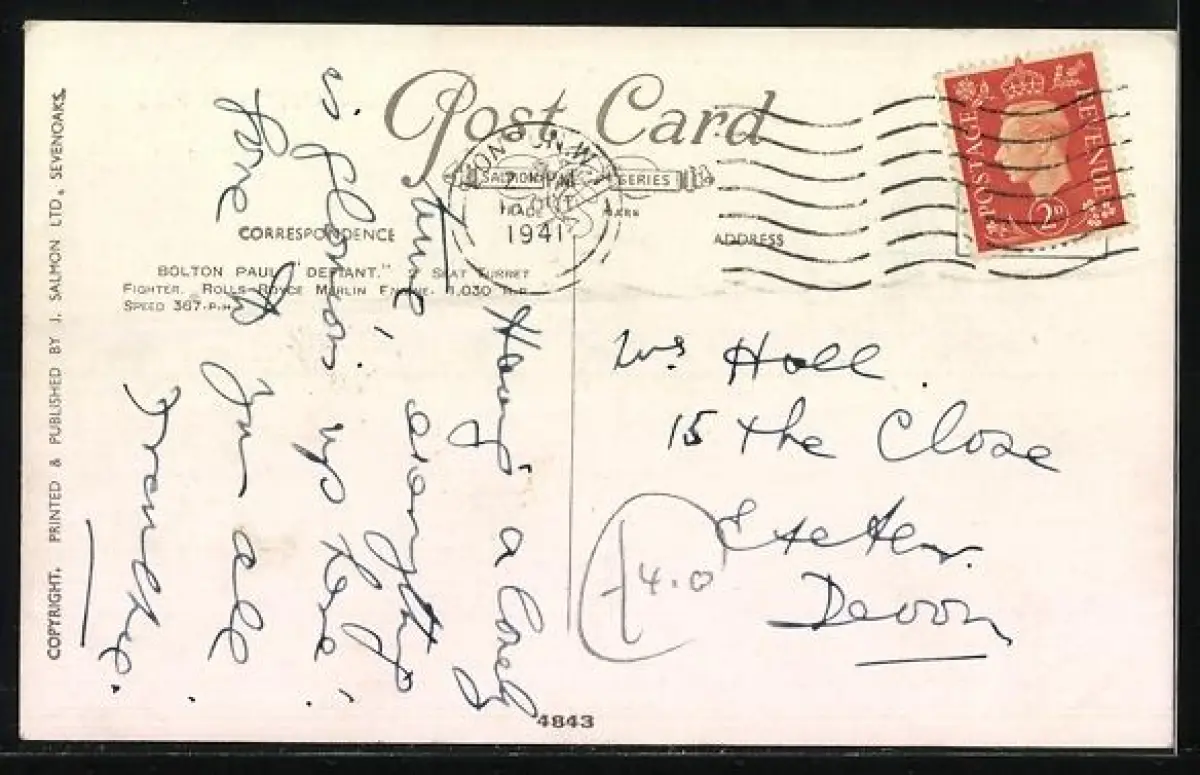 Post Card
SALMON SERIES
TRADE MARK
CORRESPONDENCE
ADDRESS
BOLTON PAUL "DEFIANT." 2 SEAT TURRET
FIGHTER. ROLLS-ROYCE MERLIN ENGINE. 1,030 H.P.
SPEED 367 M.P.H.
COPYRIGHT. PRINTED & PUBLISHED BY J. SALMON LTD, SEVENOAKS.
LONDON. W.
1941
POSTAGE REVENUE
2D
Having a lovely
time, everything
is glorious up here
love to
you all
Mrs Hall.
15 the Close
Exeter.
Devon
4.0
4843